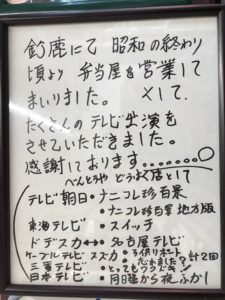 鈴鹿にて 昭和の終わり
頃より 弁当屋を営業して
まいりました。 そして、
たくさんの テレビ出演を
させていただきました。
感謝しております.......。
べんとうや どうぶつ店として
テレビ朝日・ナニコレ珍百景
・ナニコレ珍百景 地方版
東海テレビ・スイッチ
ドデスカ↔名古屋テレビ
ケーブルテレビ スズカ・子供リポート 計2回
三重テレビ・とってもワクドキ!
日本テレビ・月曜から夜ふかし